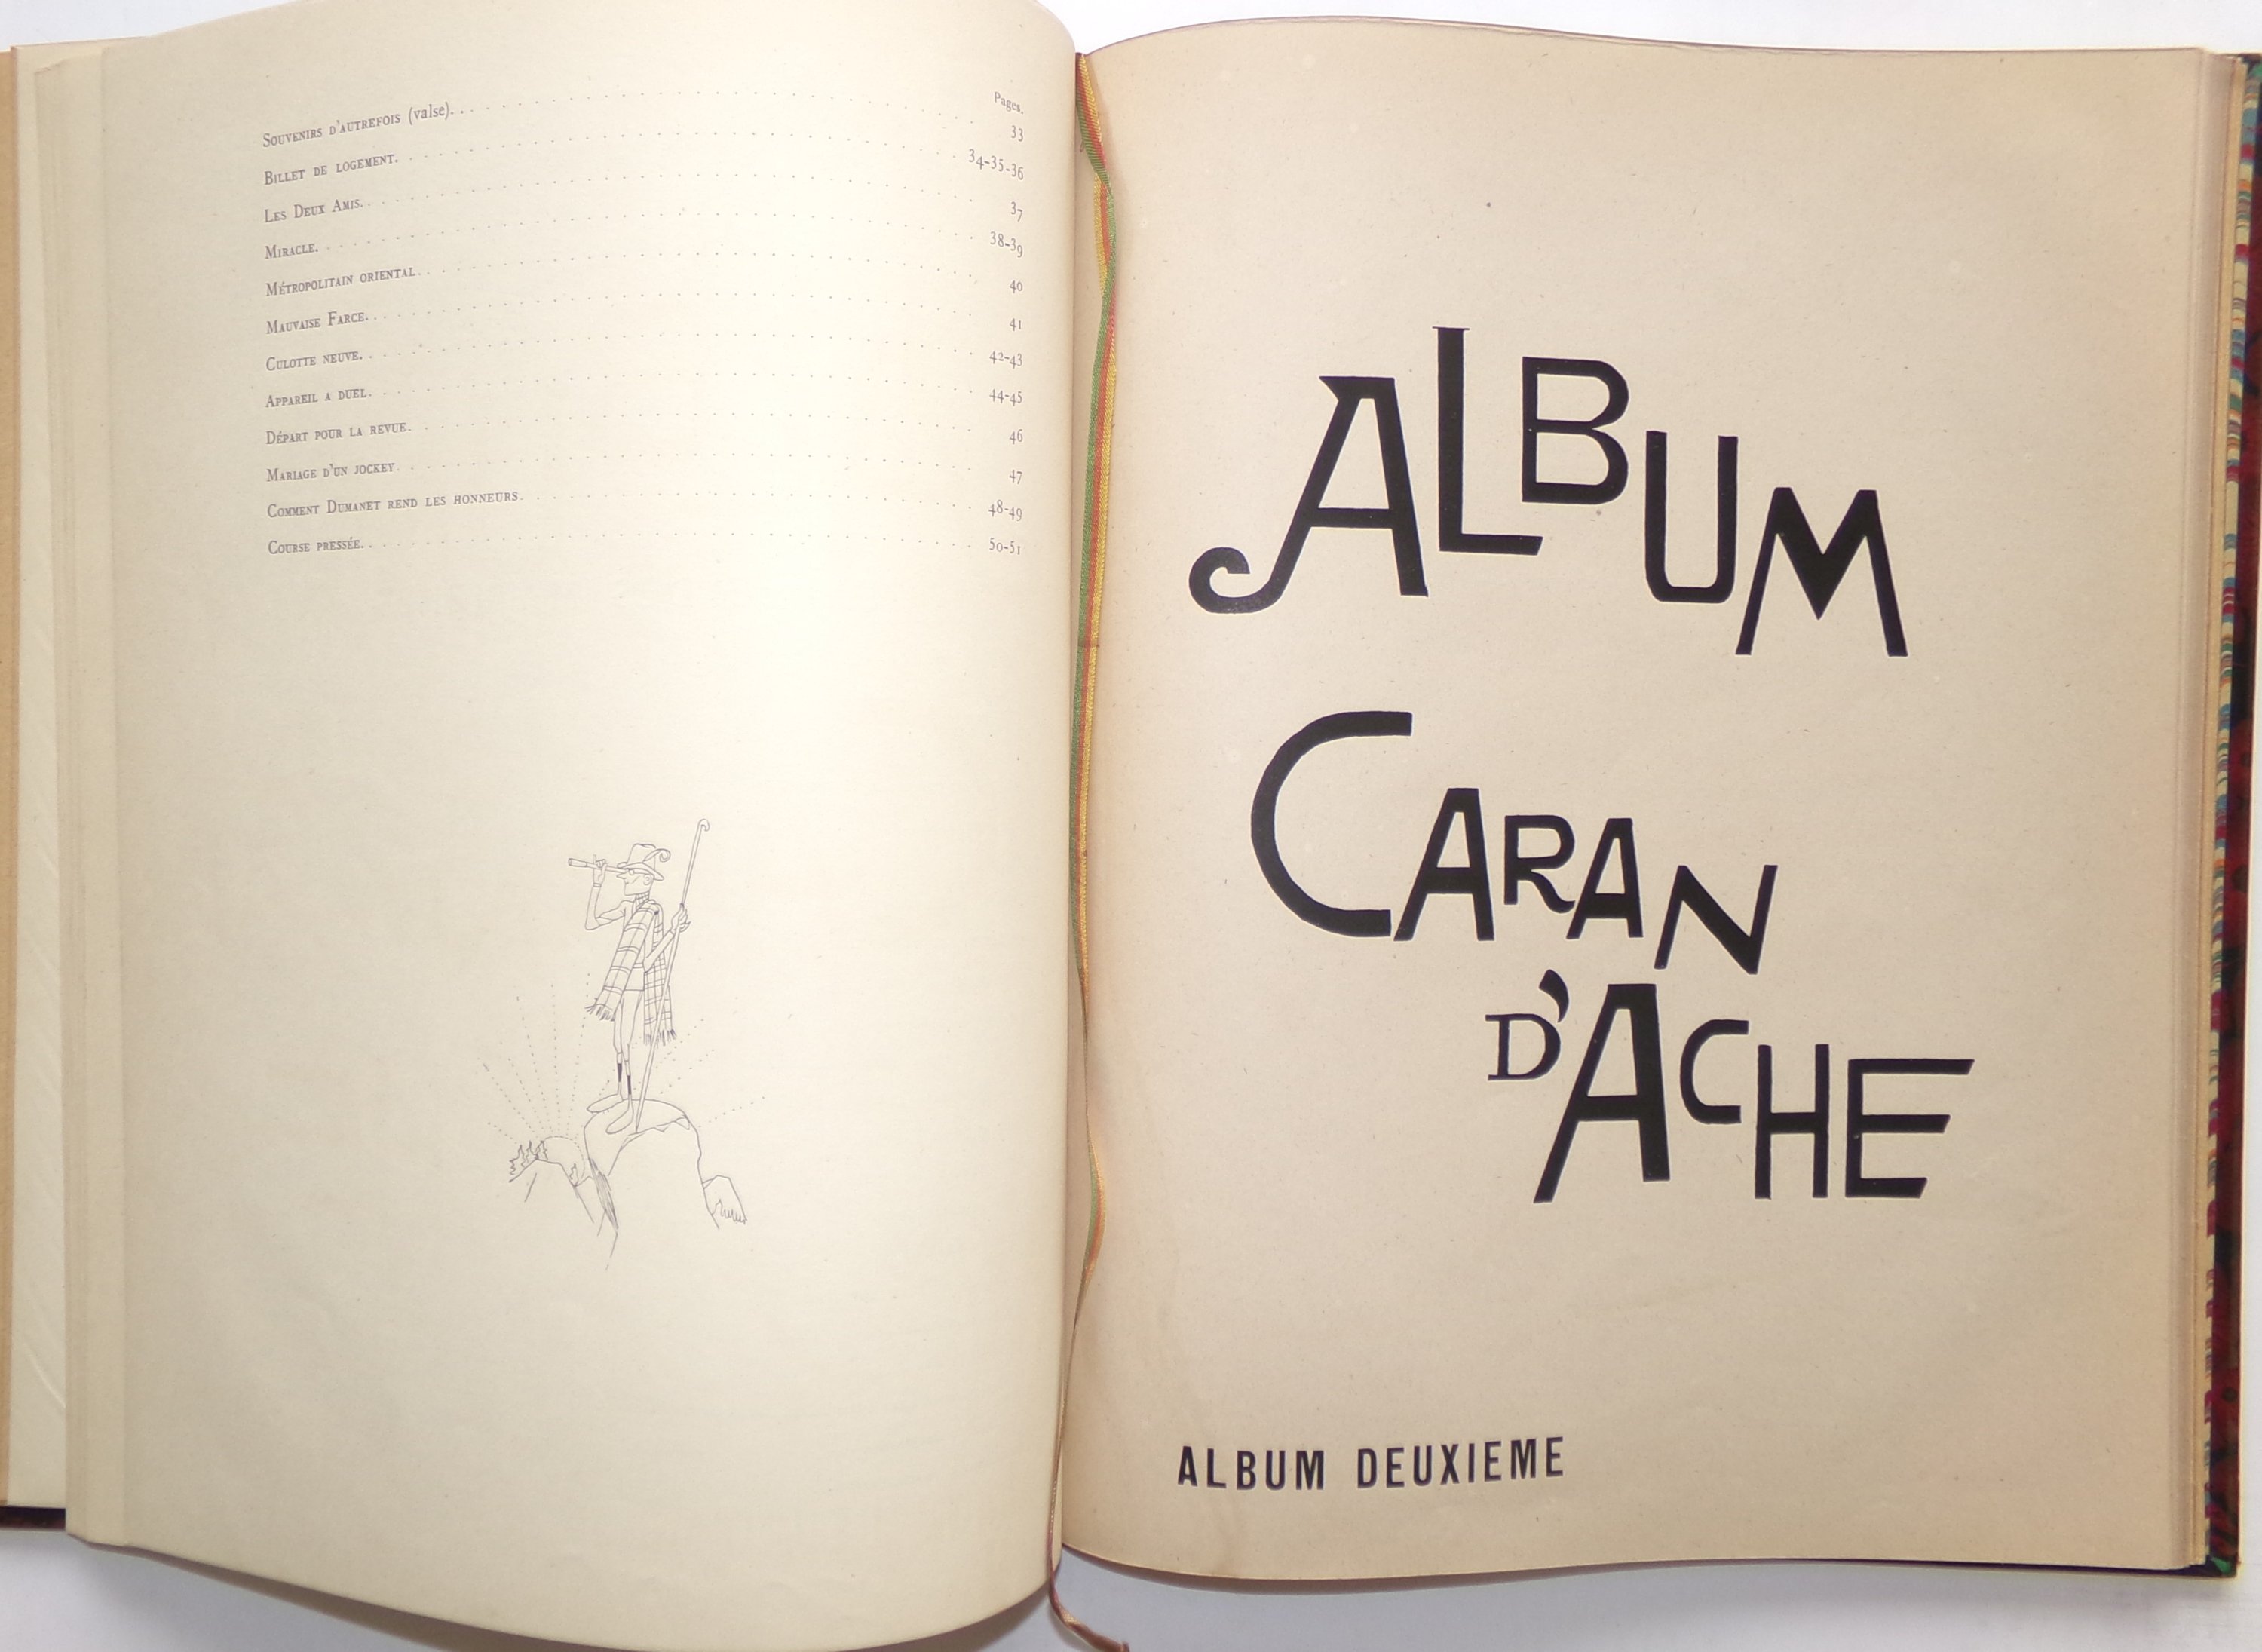 Pages.
SOUVENIRS D'AUTREFOIS (valse). . 33
BILLET DE LOGEMENT. 34-35-36
LES DEUX AMIS. 37
MIRACLE. 38-39
MÉTROPOLITAIN ORIENTAL. 40
MAUVAISE FARCE. 41
CULOTTE NEUVE. 42-43
APPAREIL A DUEL. 44-45
DÉPART POUR LA REVUE. 46
MARIAGE D'UN JOCKEY. 47
COMMENT DUMANET REND LES HONNEURS. 48-49
COURSE PRESSÉE. 50-51
ALBUM
CARAN
D'ACHE
ALBUM DEUXIEME